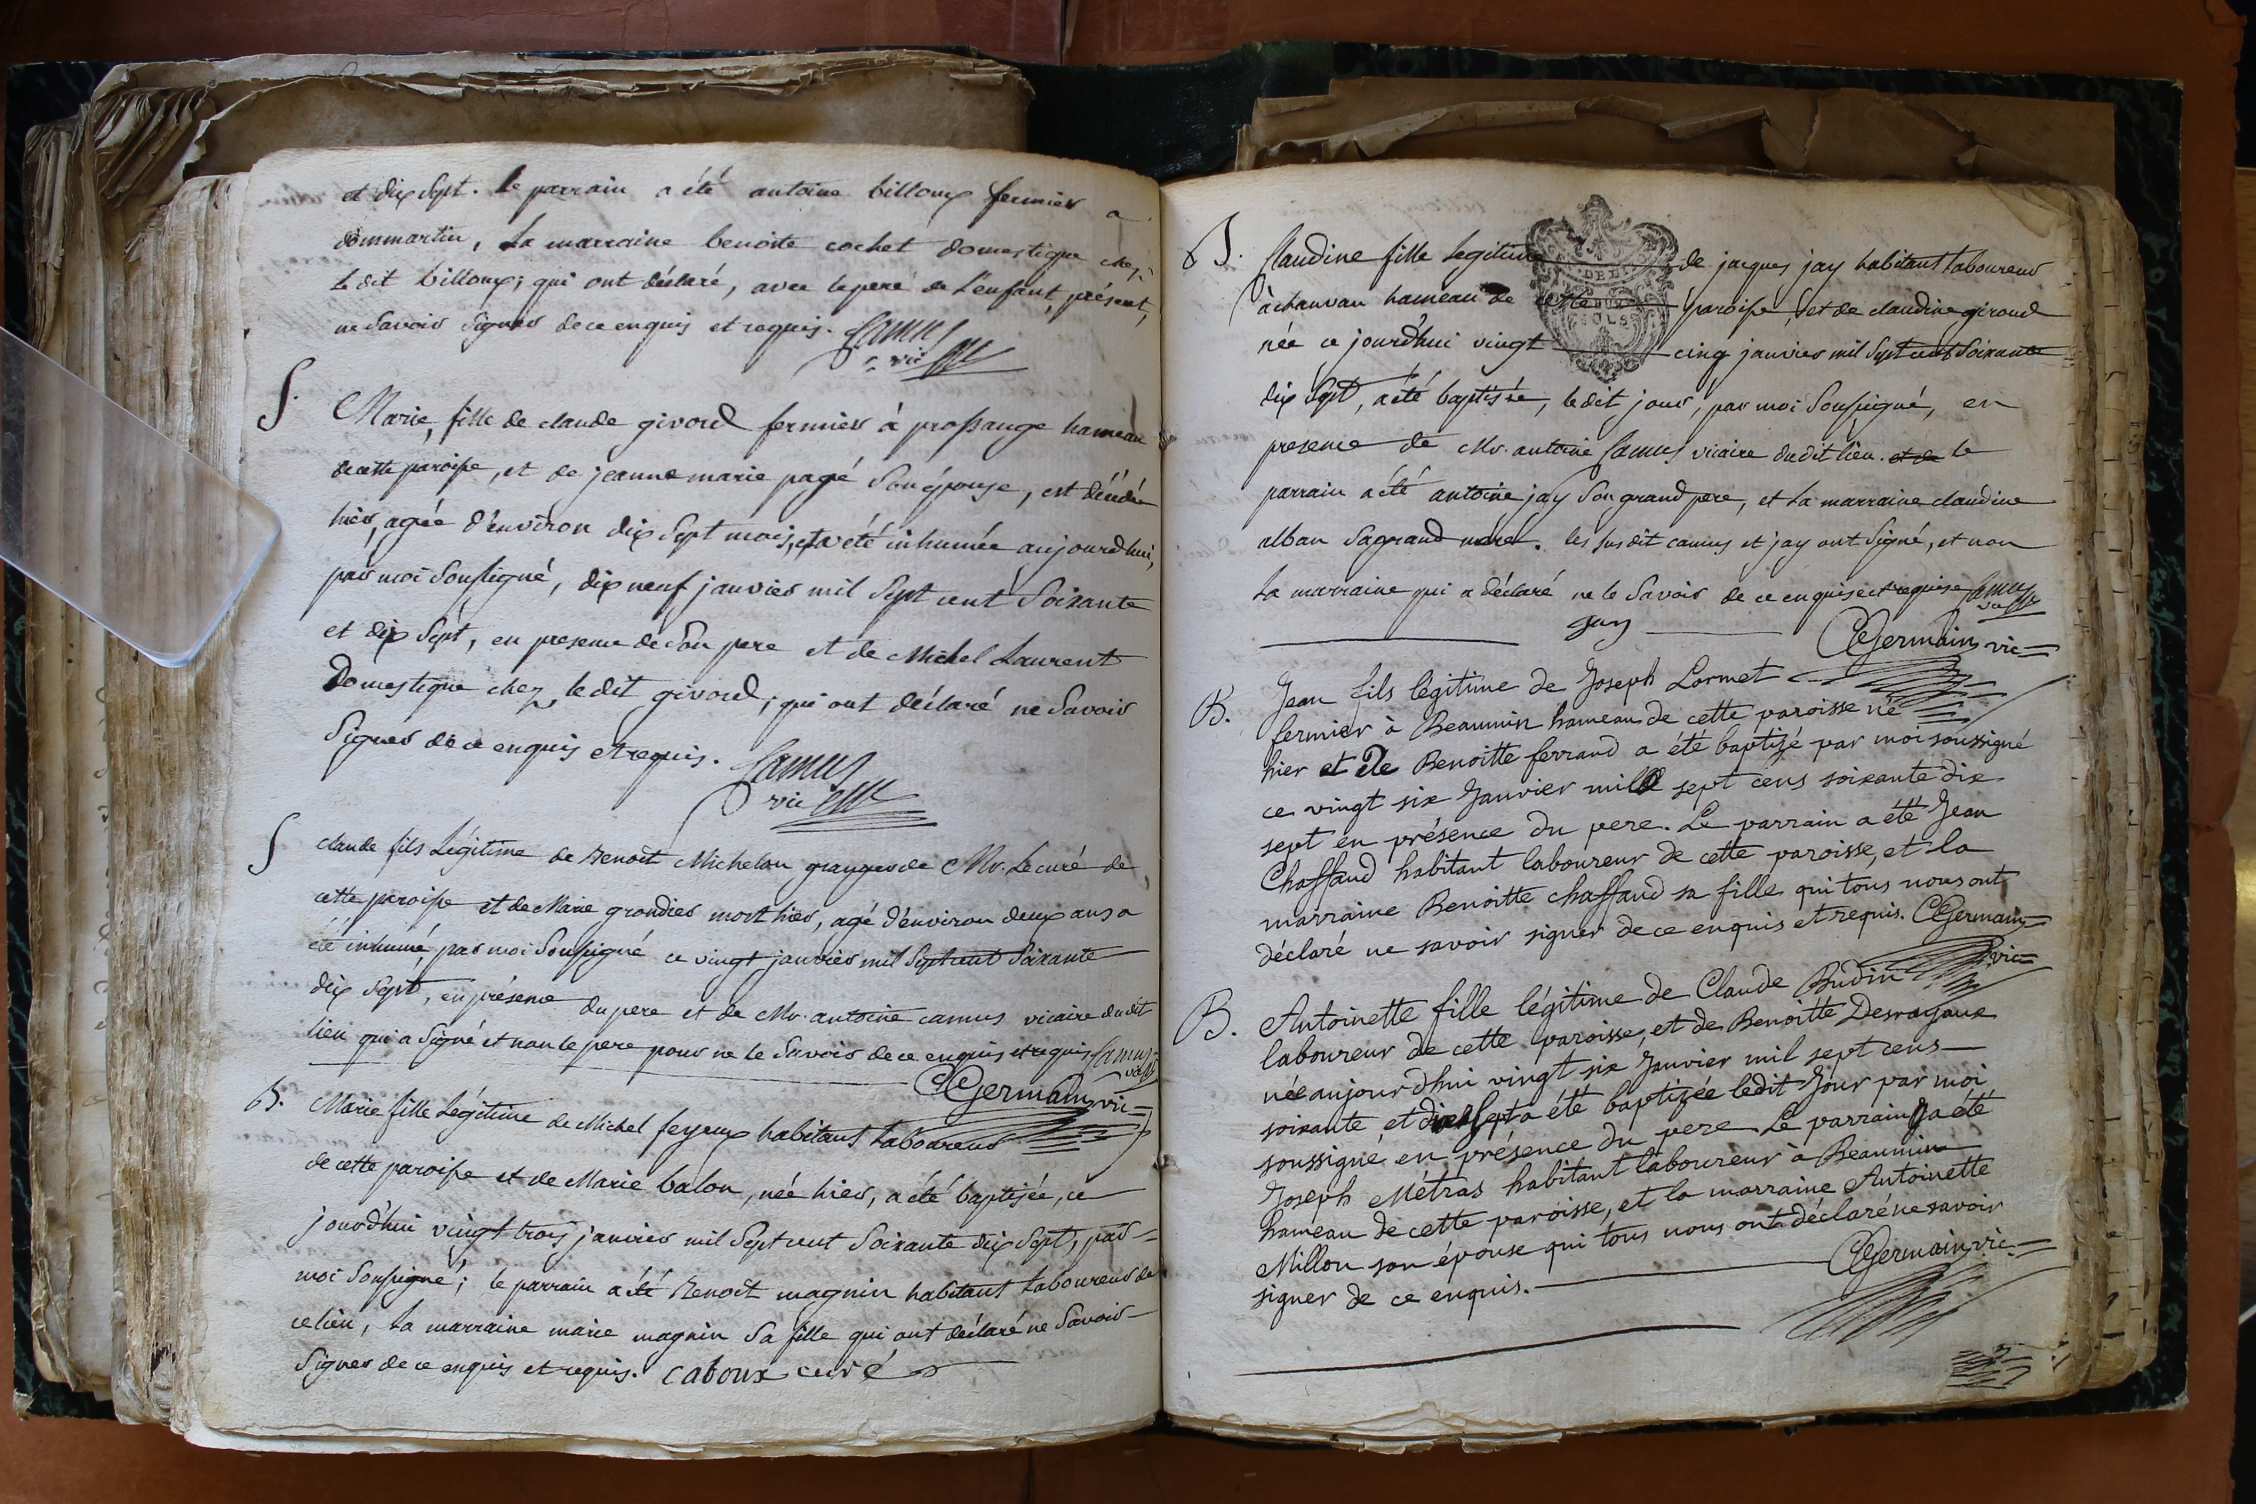 et dix sept. le parrain a été antoine billoux fermier a
dommartin, La marraine benoite cochet domestique chez
le dit billoux; qui ont déclaré, avec le pere de l'enfant, présent,
ne savoir signer de ce enquis et requis. Camus
vic
S. Marie, fille de claude givord fermier à prossange hameau
de cette paroisse, et de jeanne marie pagé son épouse, est décédée
hier, agée d'environ dix sept mois, et a été inhumée aujourd'hui,
par moi soussigné, dix neuf janvier mil sept cent soixante
et dix sept, en presence de son pere et de Michel Laurent
Domestique chez le dit givord; qui ont déclaré ne savoir
signer de ce enquis et requis. Camus
vic
S claude fils Légitime de Benoit Michelon granger de Mr. Le curé de
cette paroisse et de Marie grondier mort hier, agé d'environ deux ans a
été inhumé, par moi soussigné ce vingt janvier mil sept cent soixante
dix sept, en présence du pere et de Mr. antoine camus vicaire du dit
lieu qui a signé et non le pere pour ne le savoir de ce enquis et requis Camus
vic
CGermain vic
B. Marie fille Légitime de Michel feyeux habitant Laboureur
de cette paroisse et de Marie balon, née hier, a été baptisée, ce
jourd'hui vingt trois janvier mil sept cent soixante dix sept, par
moi soussigné; le parrain a été Benoit magnin habitant Laboureur de
ce lieu, La marraine marie magnin sa fille qui ont déclaré ne savoir
signer de ce enquis et requis. caboux curé
B. Claudine fille Legitime de jacques jay habitant Laboureur
à chanvan hameau de cette paroisse, et de claudine giroud
née ce jourd'hui vingt cinq janvier mil sept cent soixante
dix sept, a été baptisée, le dit jour, par moi soussigné, en
presence de Mr. antoine Camus vicaire du dit lieu. et de le
parrain a été antoine jay son grand pere, et La marraine claudine
alban sa grand mere. les susdit camus et jay ont signé, et non
La marraine qui a déclaré ne le savoir de ce enquise et requise Camus
vic
jay
CGermain vic
B. Jean fils légitime de Joseph Lormet
fermier à Beaumin hameau de cette paroisse né
hier et de Benoitte ferrand a été baptizé par moi soussigné
ce vingt six Janvier mille sept cens soixante dix
sept en présence du pere. Le parrain a été Jean
Chaffaud habitant laboureur de cette paroisse, et la
marraine Benoitte chaffaud sa fille qui tous nous ont
déclaré ne savoir signer de ce enquis et requis. CGermain
vic
B. Antoinette fille légitime de Claude Budin
laboureur de cette paroisse, et de Benoitte Desrayaux
née aujourdhui vingt six Janvier mil sept cens
soixante et dix sept a été baptizée ledit Jour par moi
soussigné en présence du pere Le parrain a été
Joseph Métras habitant laboureur à Beaumin
hameau de cette paroisse, et la marraine Antoinette
Millon son épouse qui tous nous ont déclaré ne savoir
signer de ce enquis. CGermain vic